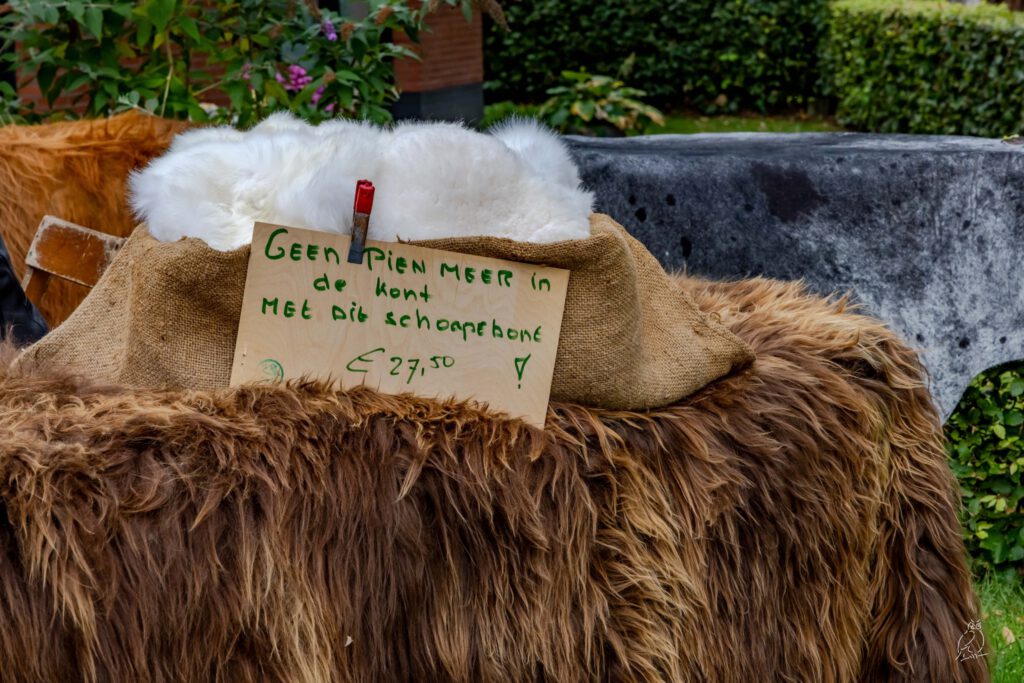 GEEN PIEN MEER in
de kont
MET Dit schoapebont
€ 27,50 !